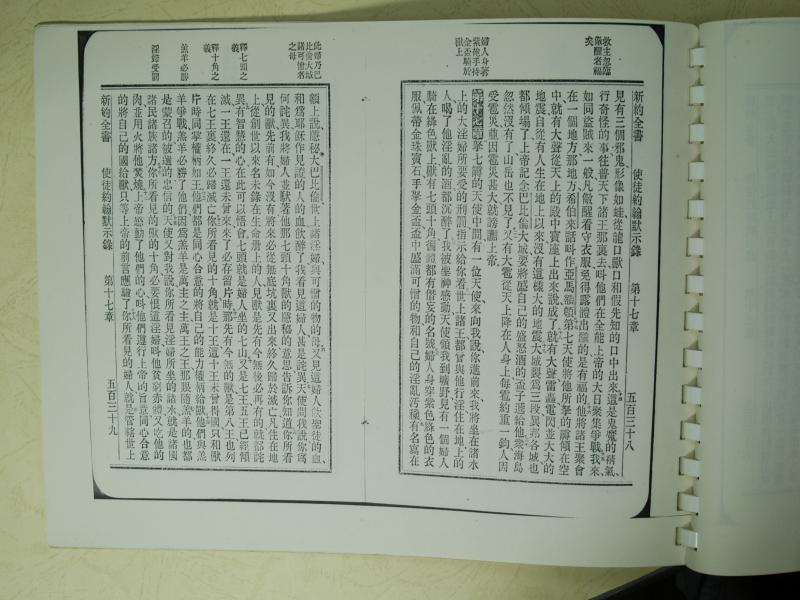 救主忽臨
儆醒者福
矣
婦人身著
紫袍手持
金盃騎於
獸上
新約全書　使徒約翰默示錄　第十七章　五百三十八
見有三個邪鬼形像如蛙從龍口獸口和假先知的口中出來這是鬼魔的精氣
行奇怪的事往普天下諸王那裏去叫他們在全能上帝的大日聚集爭戰我來
如同盜賊來一般凡儆醒看守衣服免得露體出醜的是有福的他將諸王聚會
在一個地方那地方希伯來話叫作亞馬額頓第七天使將他所拏的壜傾在空
中就有大聲從天上的殿中寶座上出來說成了就有大聲雷轟電閃並大大的
地震自從有人生在地上以來沒有這樣大的地震大城裂為三段異邦各城也
都傾塌了上帝記念巴比倫大城要將盛自己的盛怒酒的盃子遞給他衆海島
忽然沒有了山岳也不見了又有大雹從天上降在人身上每雹約重一鈞人因
受雹災並因雹災甚大就謗讟上帝
第十七章拏七壜的天使中間有一位天使來向我說你進前來我將坐在諸水
上的大淫婦所要受的刑罰指示給你看世上諸王都曾與他行淫住在地上的
人喝了他淫亂的酒都沉醉了我被聖神感動天使領我到曠野見有一個婦人
騎在絳色獸上獸有七頭十角徧體都有僭妄的名號婦人身穿紫色絳色的衣
服佩帶金珠寶石手拏金盃盃中盛滿可憎的物和自己的淫亂污穢有名寫在
此婦乃巴
比倫大城
諸可憎者
之母
釋七頭之
義
釋十角之
義
羔羊必勝
淫婦受罰
額上說隱秘大巴比倫世上諸淫婦與可憎的物的母又見這婦人飲聖徒的血
和為耶穌作見證的人的血飲醉了我看見這婦人甚是詫異天使問我說你為
何詫異我將婦人並馱著他那七頭十角獸的隱秘的意思告訴你知道你所看
見的獸先前有如今沒有將來必從無底坑裏又出來終久歸於滅亡凡住在地
上從創世以來名未錄在生命册上的人見獸是先有今無後必再有的就都詫
異有智慧的心在此可以悟會七頭就是婦人坐的七山又是七王五王已經傾
滅一王還在一王還未曾來來了必存留片時那先有今無的獸是第八王也列
在七王裏終久必歸滅亡你所看見的十角就是十王這十王未曾得國只和獸
片時同掌權柄如王他們都是同心合意的將自己的能力權柄給獸他們與羔
羊爭戰羔羊必勝了他們因為羔羊是萬主之主萬王之王那跟隨羔羊的也都
是蒙召的被選的忠信的天使又對我說你所看見淫婦所坐的諸水就是諸國
諸民諸族諸方你所看見的獸的十角必要恨這淫婦呌他貧窮赤體又吃他的
肉並用火將他焚燒上帝感動了他們的心呌他們遵行上帝的旨意同心合意
的將自己的國給獸只等上帝的前言應驗了你所看見的婦人就是管轄世上
新約全書　使徒約翰默示錄　第十七章　五百三十九